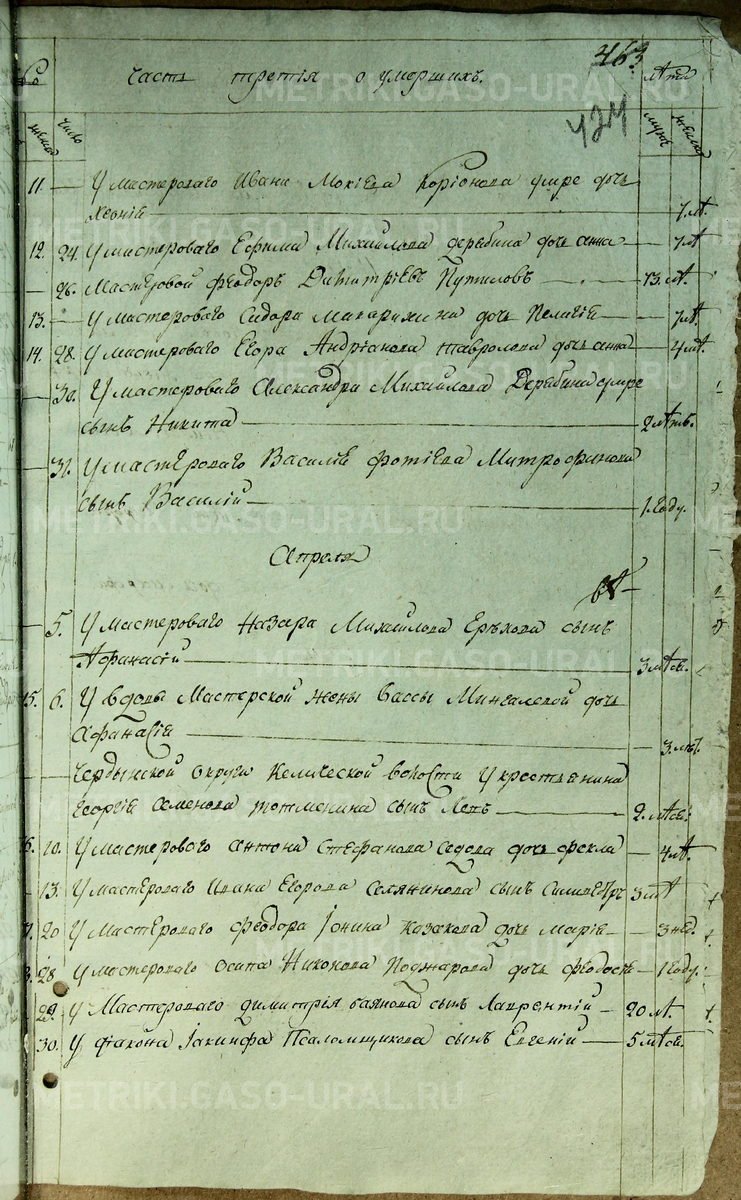 463
Часть третія о умершихъ. лѣта
424
число мужс женск
11. — У мастероваго Ивана Мокіева Коріонова умре дочь
— 7 лѣ.
12. 24. У мастероваго Ефима Михайлова дерябина дочь анна — 7 лѣ
— 26. Мастеровой Феодоръ Димитріевъ Путиловъ — 73. лѣ.
13. — У мастероваго Сидора Макарихина дочь Пелагіе — 7 лѣ.
14. 28. У мастероваго Егора Андріанова дочь анна — 4 лѣ.
— 30. У мастероваго Александра Михайлова Дерябина умре
сынъ Никита — 2 лѣтъ.
— 31. У мастероваго Василіе фотіева Митрофанова
сынъ Василій — 1. году.
Апреля
— 5. У мастероваго Назара Михайлова сынъ
Афанасій — 3 мѣся.
15. 6. У вдовы Мастерской жены Вассы Мингалевой дочь
Афанасіе — 3. лѣт.
Чердынской округи волости У крестьянина
Георгіе Семенова тотменина сынъ — 2. мѣся.
16. 10. У мастероваго антона Стефанова Седова дочь фекла — 4 лѣ.
— 13. У мастероваго Ивана Егорова Селянинова сынъ 3 лѣ
20 У мастероваго феодора Іонина Казакова дочь Маріе — 3 нед.
28 У мастероваго Осипа Никонова Поджарова дочь — 1 году.
29. У Мастероваго димитрія баянова сынъ Лаврентій — 20 лѣ.
30. У діакона Іакинфа Псаломщикова сынъ Евгеній — 5 мѣся.
METRIKI.GASO-URAL.RU